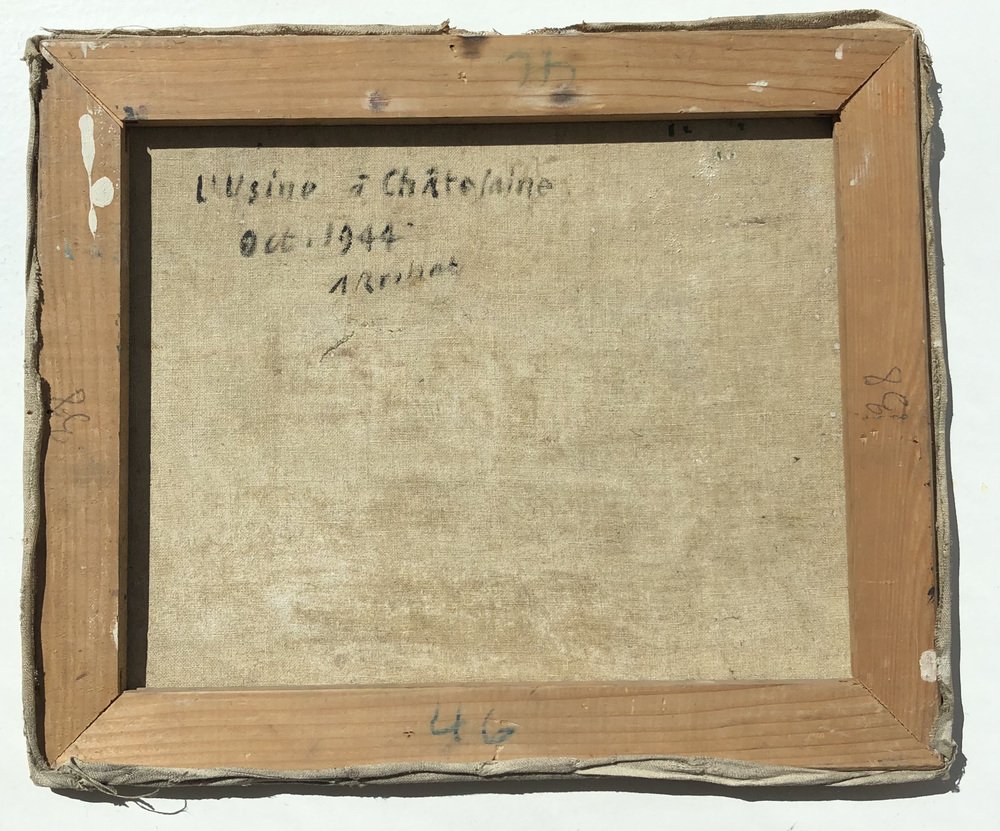 46
L'Usine à Châtelaine
Oct. 1944
38
38
46